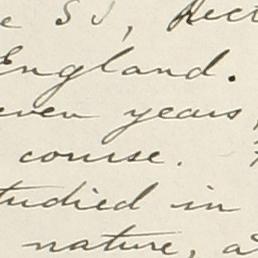 SJ, Rect
England.
even years,
course.
tudied in
nature, a